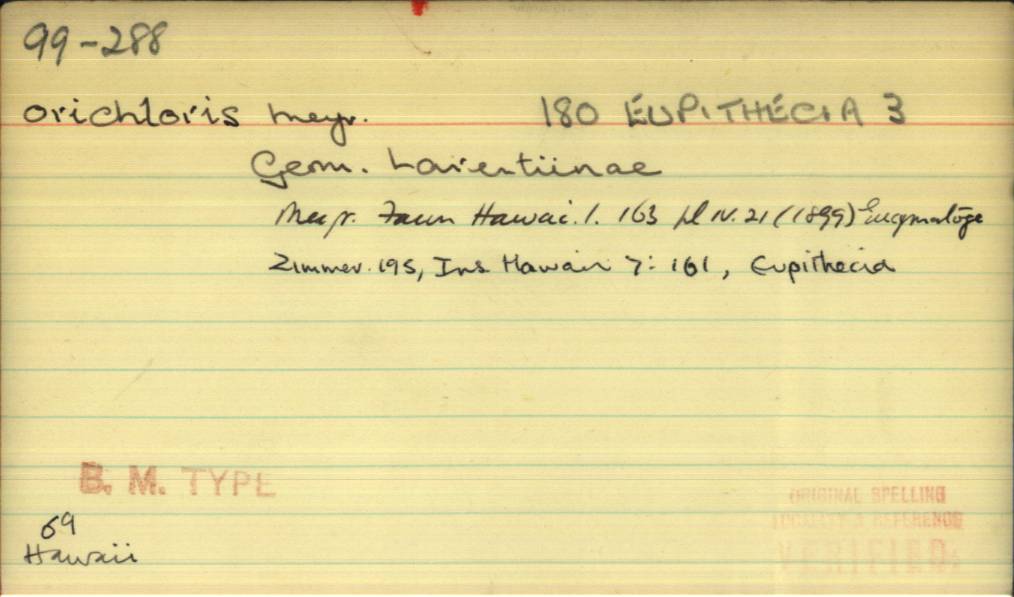 99-288
orichloris Meyr. 180 EUPITHECIA 3
Geom. Larentiinae
Meyr. Faun Hawai. 1. 163 pl IV. 21 (1899) Eucymatoge
Zimmer. 195, Ins Hawaii 7: 161, Eupithecia
B. M. TYPE
ORIGINAL SPELLING
LOCALITY & REFERENCE
VERIFIED.
69
Hawaii